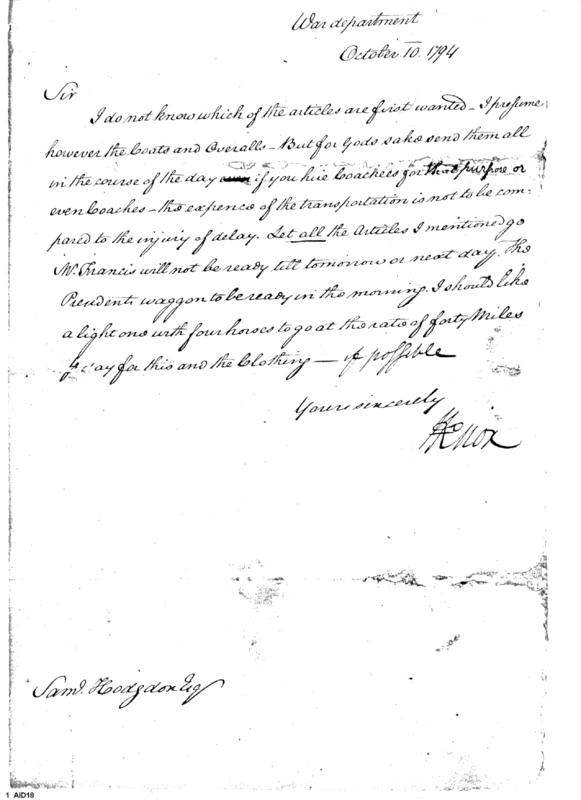 War department
October 10. 1794
Sir
I do not know which of the articles are first wanted - I presume
however the Coats and Overalls - But for Gods sake send them all
in the course of the day if you hire Coachees for that purpose or
even Coaches - the expence of the transportation is not to be com-
pared to the injury of delay. Let all the Articles I mentioned go
Mr. Francis will not be ready till tomorrow or next day. The
Presidents waggon to be ready in the morning. I should like
a light one with four horses to go at the rate of forty Miles
day for this and the Clothing — if possible
Yours sincerely
HKnox
Saml. Hodgdon Esq
1 AID18